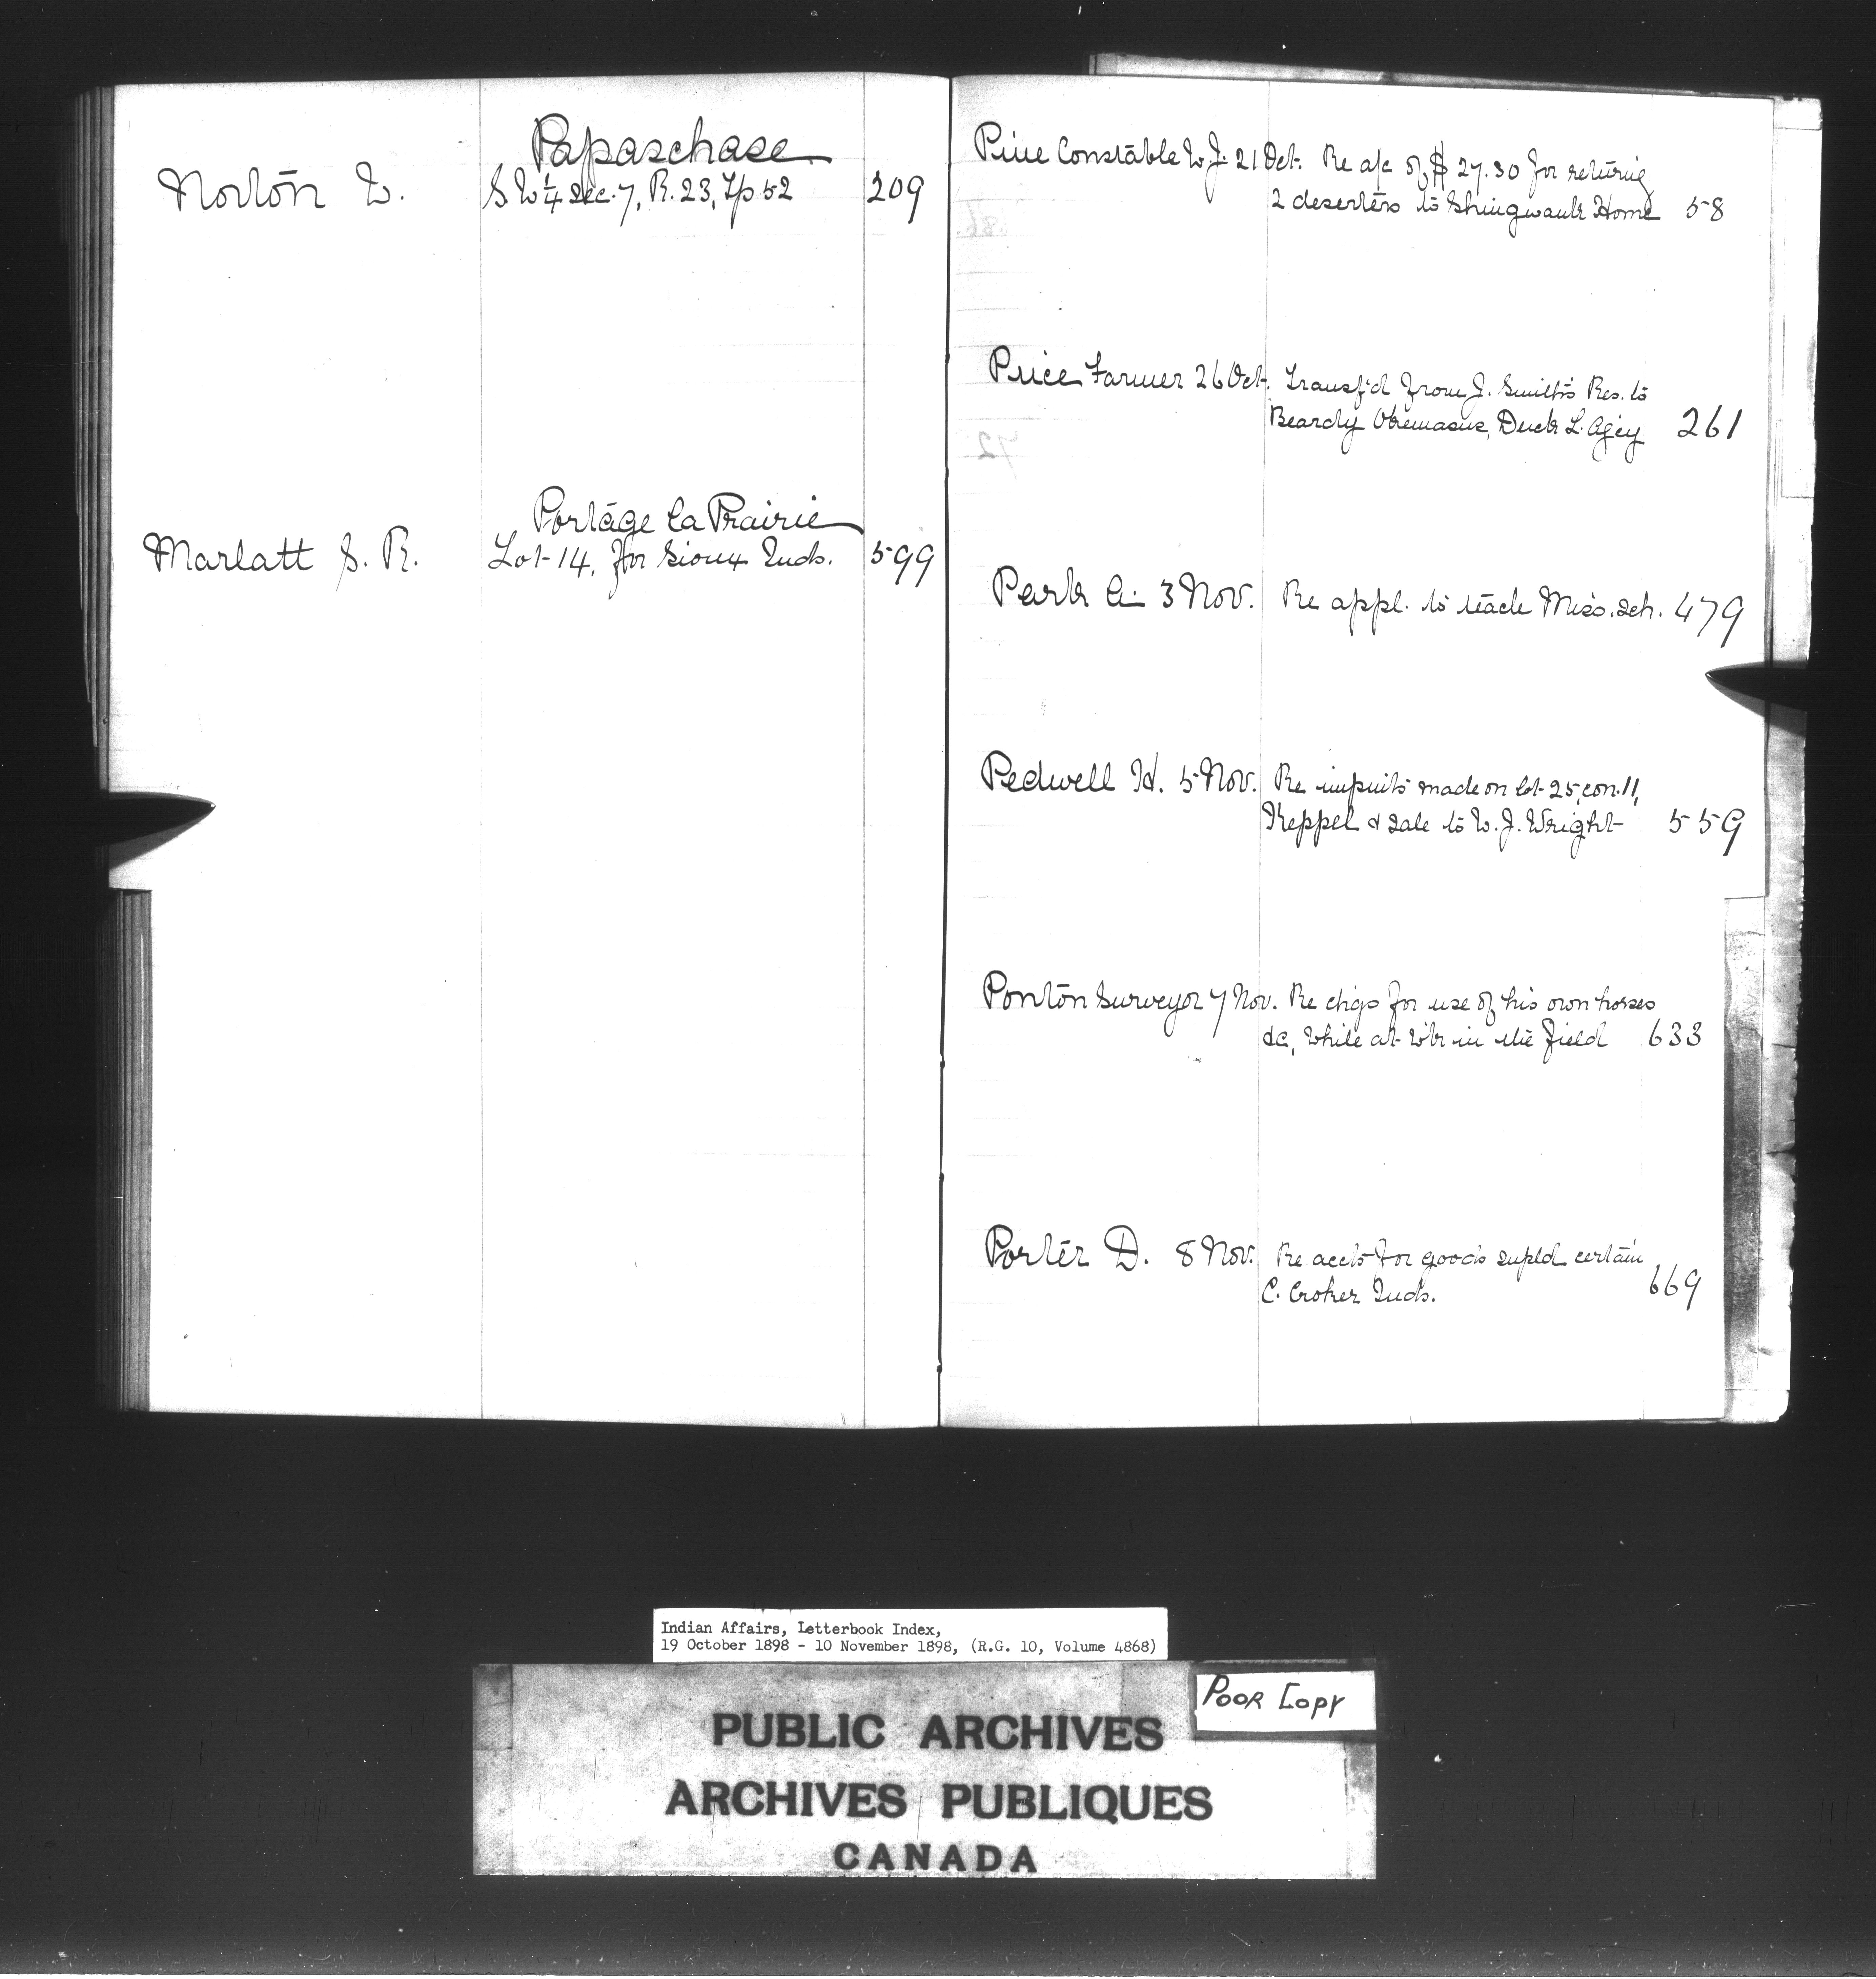 Papaschase
Norton W. S W 1/4 Sec. 7, R. 23, Tp 52 209
Portage la Prairie
Marlatt S. R. Lot 14, for Sioux Inds. 599
Constable W. J. 21 Oct. Re a/c of $27.30 for returing
2 deserters to Shingwauk Home 58
Price Farmer 26 Oct. Transf'd from J. Smith's Res. to
Beardy Okemasis, Duck L. Agcy 261
Park A. 3 Nov. Re appl. to teach Miss. sch. 479
Pedwell H. 5 Nov. Re impmts made on lot 25, con. 11,
Keppel & sale to W. J. Wright 559
Ponton Surveyor 7 Nov. Re chgs for use of his own horses
&c, while at w'k in the field 633
Porter D. 8 Nov. Re accts for goods supld certain
C. Croker Inds. 669
Indian Affairs, Letterbook Index,
19 October 1898 - 10 November 1898, (R.G. 10, Volume 4868)
POOR COPY
PUBLIC ARCHIVES
ARCHIVES PUBLIQUES
CANADA